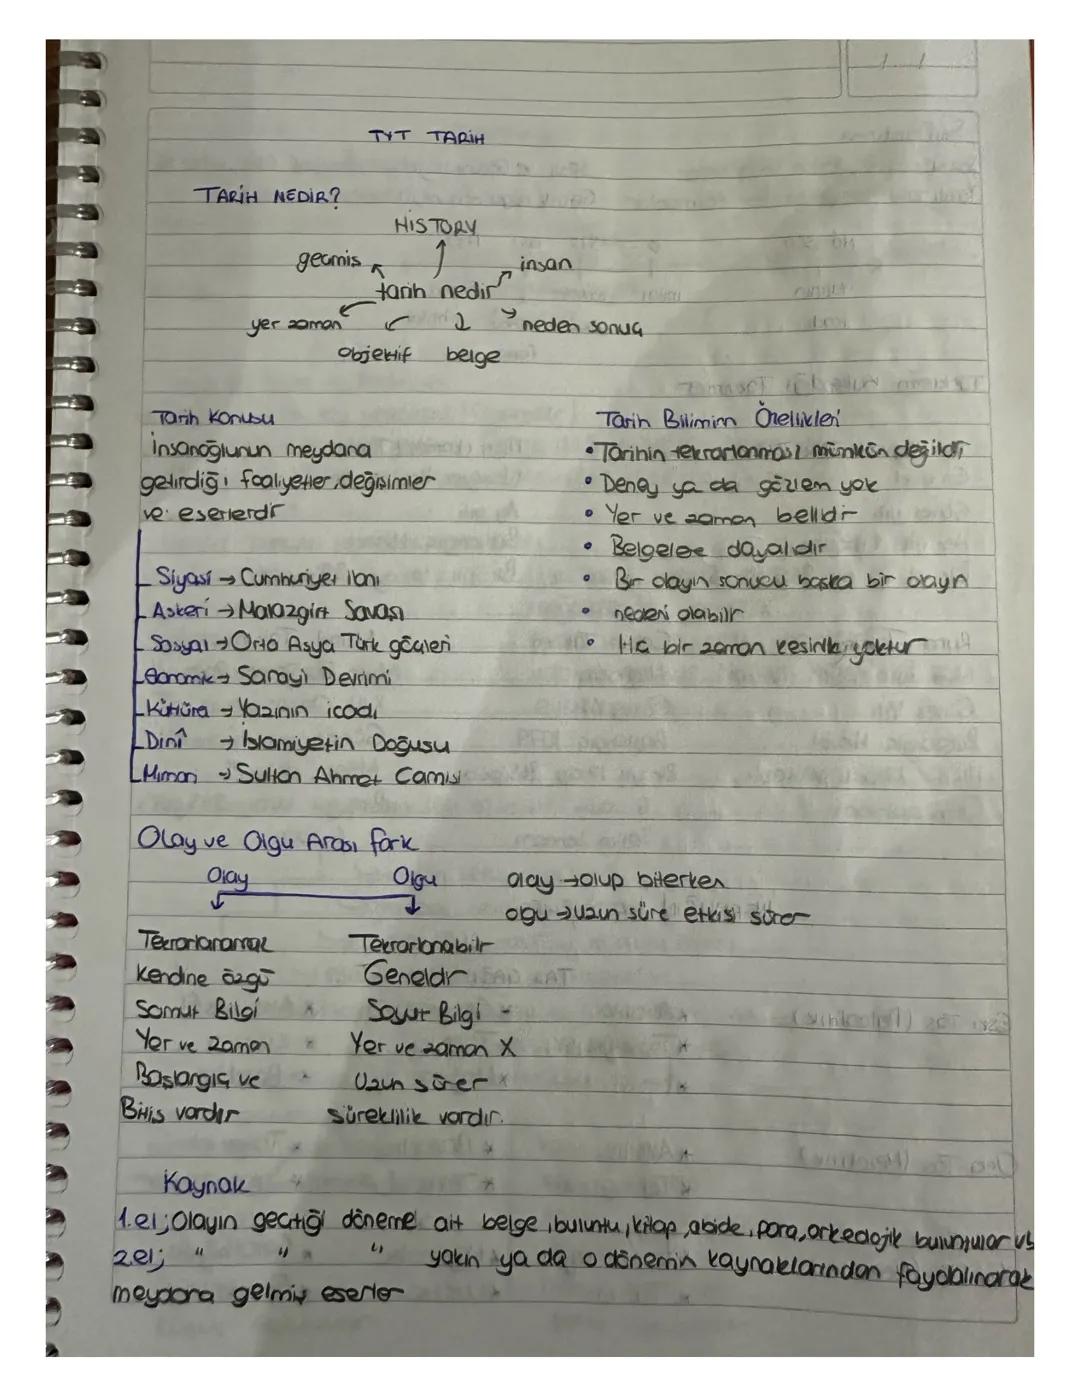 TYT TARİH
TARİH NEDİR?
HİSTORY
geçmiş
insan
tarih nedir
yer zaman
neden sonuç
objektif belge
Tarih Konusu
İnsanoğlunun meydana
getirdiği faaliyetler, değişimler
ve eserlerdir
Siyasi → Cumhuriyet ilanı
Askeri → Malazgirt Savaşı
Sosyal → Orta Asya Türk göçleri
Ekonomik → Sanayi Devrimi
Kültürü → Yazının icadı
Dinî → İslamiyetin Doğuşu
Mimari → Sultan Ahmet Camisi
Tarih Bilimin Özellikleri
• Tarihin tekrarlanması mümkün değildir
• Deney ya da gözlem yok
• Yer ve zaman bellidir
• Belgelere dayalıdır
• Bir olayın sonucu başka bir olayın
• nedeni olabilir
• Hiç bir zaman kesinlik yoktur
Olay ve Olgu Arası fark
Olay Olgu
olay → olup biterken
olgu → uzun süre etkisi sürer
Tekrarlanamaz Tekrarlanabilir
kendine özgü Geneldir
Somut Bilgi Soyut Bilgi -
Yer ve zaman Yer ve zaman X
Başlangıç ve Uzun sürer
Bitiş vardır süreklilik vardır.
Kaynak
1.el; Olayın geçtiği döneme ait belge, buluntu, kitap, abide, para, arkeolojik buluntular vb
2.el; " " " yakın ya da o dönemin kaynaklarından faydalınarak
meydana gelmiş eserler